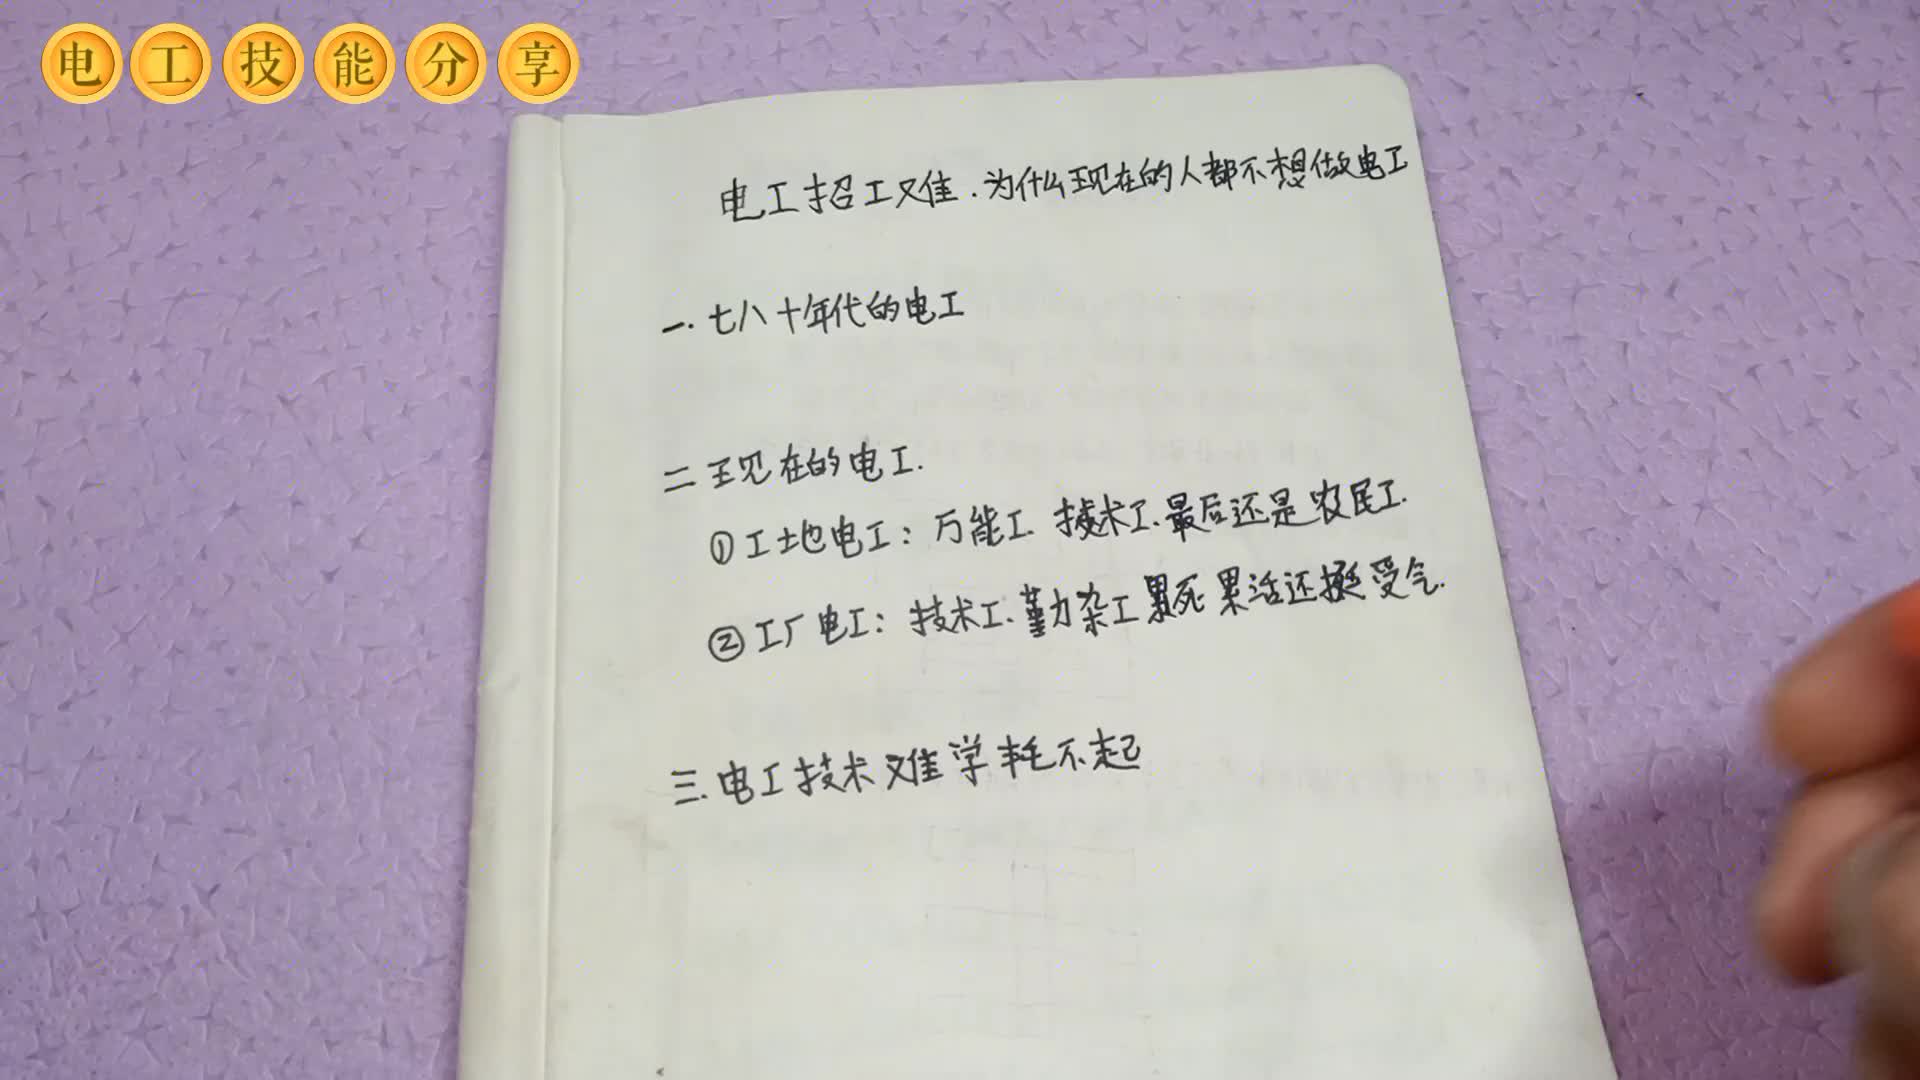 电工技能分享
电工招工难.为什么现在的人都不想做电工
一.七八十年代的电工
二现在的电工.
①工地电工：万能工.技术工.最后还是农民工.
②工厂电工：技术工.勤杂工累死累活还挺受气.
三.电工技术难学耗不起